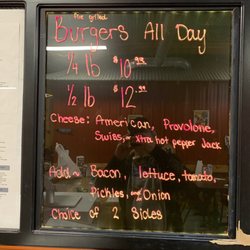 fire grilled
Burgers All Day
1/4 lb $10.95
1/2 lb $12.95
Cheese: American, Provolone,
Swiss, xtra hot pepper Jack
Add ~ Bacon, lettuce, tomato,
Pickles, and Onion
Choice of 2 Sides